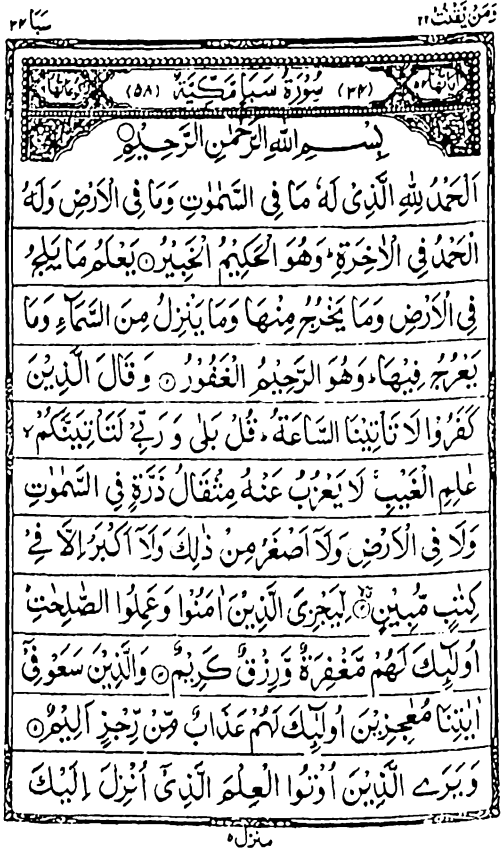 وَمَنْ يَّقْنُتْ ٢٢
سَبَا ٣٤
اٰیَاتُهَا ٥٤ (٣٤) سُوْرَةُ سَبَاٍ مَکِّیَّةٌ (٥٨) رُکُوْعَاتُهَا
بِسْمِ اللّٰهِ الرَّحْمٰنِ الرَّحِیْمِ
اَلْحَمْدُ لِلّٰهِ الَّذِیْ لَهٗ مَا فِی السَّمٰوٰتِ وَمَا فِی الْاَرْضِ وَلَهُ
الْحَمْدُ فِی الْاٰخِرَةِ ؕ وَهُوَ الْحَکِیْمُ الْخَبِیْرُ ۝١ یَعْلَمُ مَا یَلِجُ
فِی الْاَرْضِ وَمَا یَخْرُجُ مِنْهَا وَمَا یَنْزِلُ مِنَ السَّمَآءِ وَمَا
یَعْرُجُ فِیْهَا ؕ وَهُوَ الرَّحِیْمُ الْغَفُوْرُ ۝٢ وَقَالَ الَّذِیْنَ
کَفَرُوْا لَا تَاْتِیْنَا السَّاعَةُ ؕ قُلْ بَلٰی وَرَبِّیْ لَتَاْتِیَنَّکُمْ ۙ
عٰلِمِ الْغَیْبِ ۚ لَا یَعْزُبُ عَنْهُ مِثْقَالُ ذَرَّةٍ فِی السَّمٰوٰتِ
وَلَا فِی الْاَرْضِ وَلَاۤ اَصْغَرُ مِنْ ذٰلِكَ وَلَاۤ اَکْبَرُ اِلَّا فِیْ
کِتٰبٍ مُّبِیْنٍ ۝٣ لِّیَجْزِیَ الَّذِیْنَ اٰمَنُوْا وَعَمِلُوا الصّٰلِحٰتِ ؕ
اُولٰٓئِكَ لَهُمْ مَّغْفِرَةٌ وَّرِزْقٌ کَرِیْمٌ ۝٤ وَالَّذِیْنَ سَعَوْ فِیْۤ
اٰیٰتِنَا مُعٰجِزِیْنَ اُولٰٓئِكَ لَهُمْ عَذَابٌ مِّنْ رِّجْزٍ اَلِیْمٌ ۝٥
وَیَرَی الَّذِیْنَ اُوْتُوا الْعِلْمَ الَّذِیْۤ اُنْزِلَ اِلَیْكَ
منزل ٥